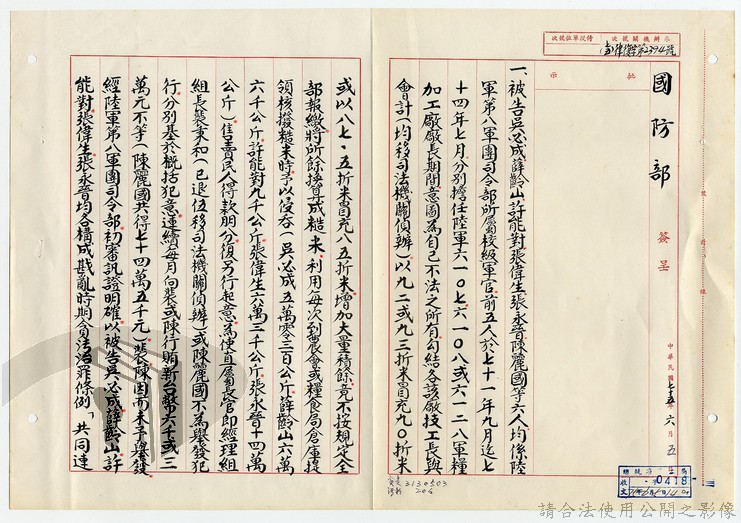 承辦機關號次
傳授單位號次
批示
國防部
簽呈
中華民國七十五年六月五日
一、被告吳必成薛齡山許能對張偉生張永晉陳麗國等六人均係陸
軍第八軍團司令部所屬校級軍官前五人於七十一年九月迄七
十四年七月分別擔任陸軍六一〇七六一〇八或六一二八軍糧
加工廠廠長期間意圖為自己不法之所有勾結各該廠技工長與
會計(均移司法機關偵辦)以九二或九三折米冒充九〇折米
或以八七·五折米冒充八五折米增加大量積餘竟不按規定全
部報繳將所餘換算成糙米利用每次到農會或糧食局倉庫提
領核撥糙米時予以侵吞(吳必成五萬零三百公斤薛齡山六萬
六千公斤許能對九千公斤張偉生六萬三千公斤張永晉十四萬
公斤)售賣民人得款朋分復另行起意為使直屬長官即經理組
組長裴秉和(已退伍移司法機關偵辦)或陳麗國不為舉發犯
行分別基於概括犯意連續每月向裴或陳行賄新台幣六千或三
萬元不等(陳麗國共得七十四萬五千元)裴陳因而未予舉發
經陸軍第八軍團司令部初審訊證明確以被告吳必成薛齡山許
能對張偉生張永晉均各構成戡亂時期貪污治罪條例「共同連
0418
3130503
206
請合法使用公開之影像